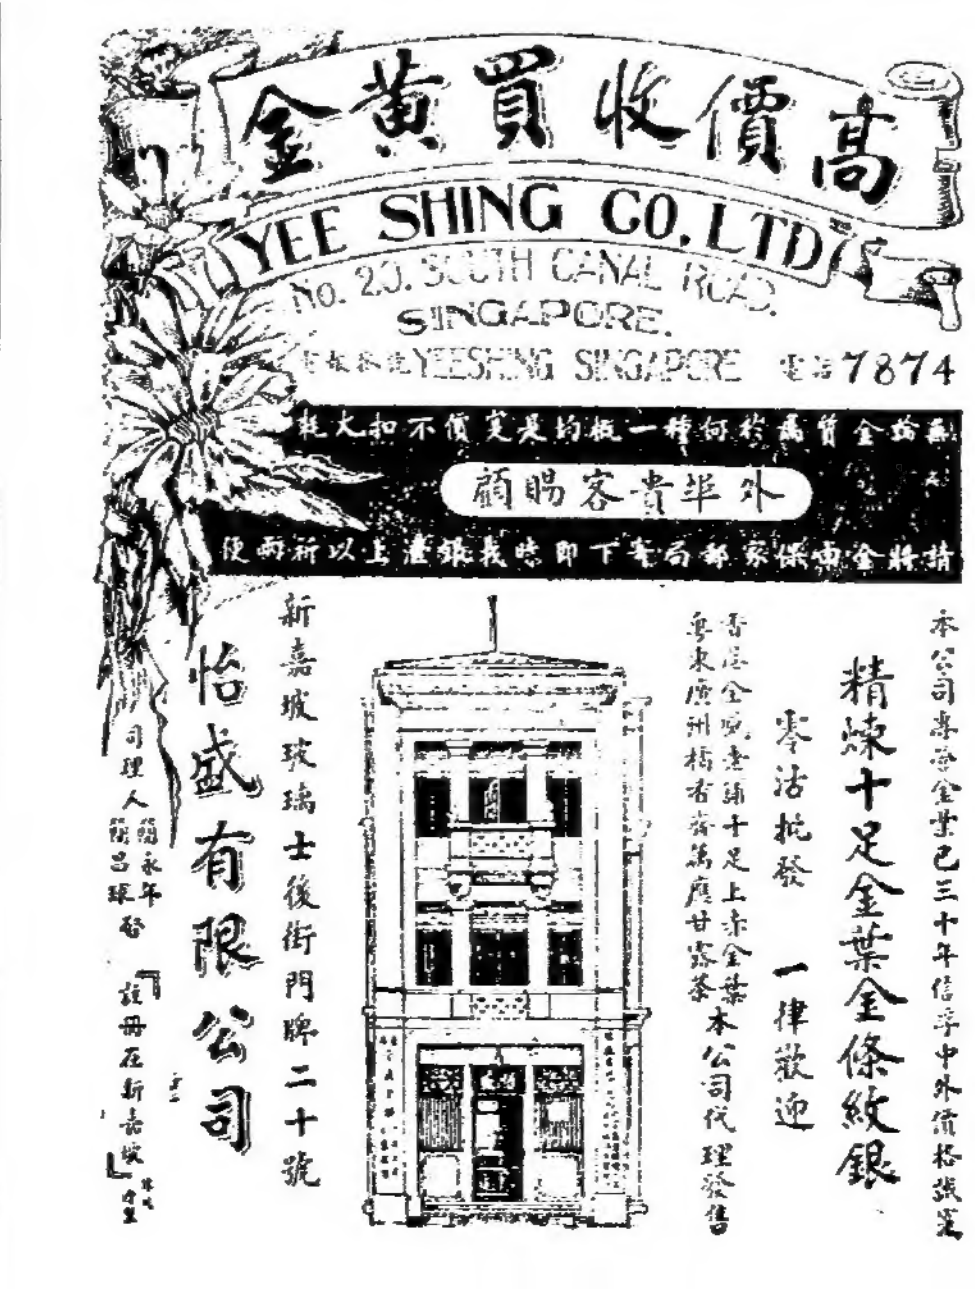 高價收買黃金
YEE SHING CO, LTD
No. 20. SOUTH CANAL ROAD.
SINGAPORE.
YEESHING SINGAPORE 電話 7874
無論金質爲於何種一概均是實價不扣大耗
外埠貴客賜顧
請將金由保家郵局寄下即時找銀滙上以祈兩便
本公司專營金業已三十年信孚中外價格誠實
精煉十足金葉金條紋銀
零沽批發 一律歡迎
香港金
十足上赤金葉
粵東廣州橘香齋萬應甘露茶
本公司代理發售
新嘉坡玻璃士後街門牌二十號
怡盛有限公司
司理人
簡永年
簡昌琼
啓
『註冊在新嘉坡』